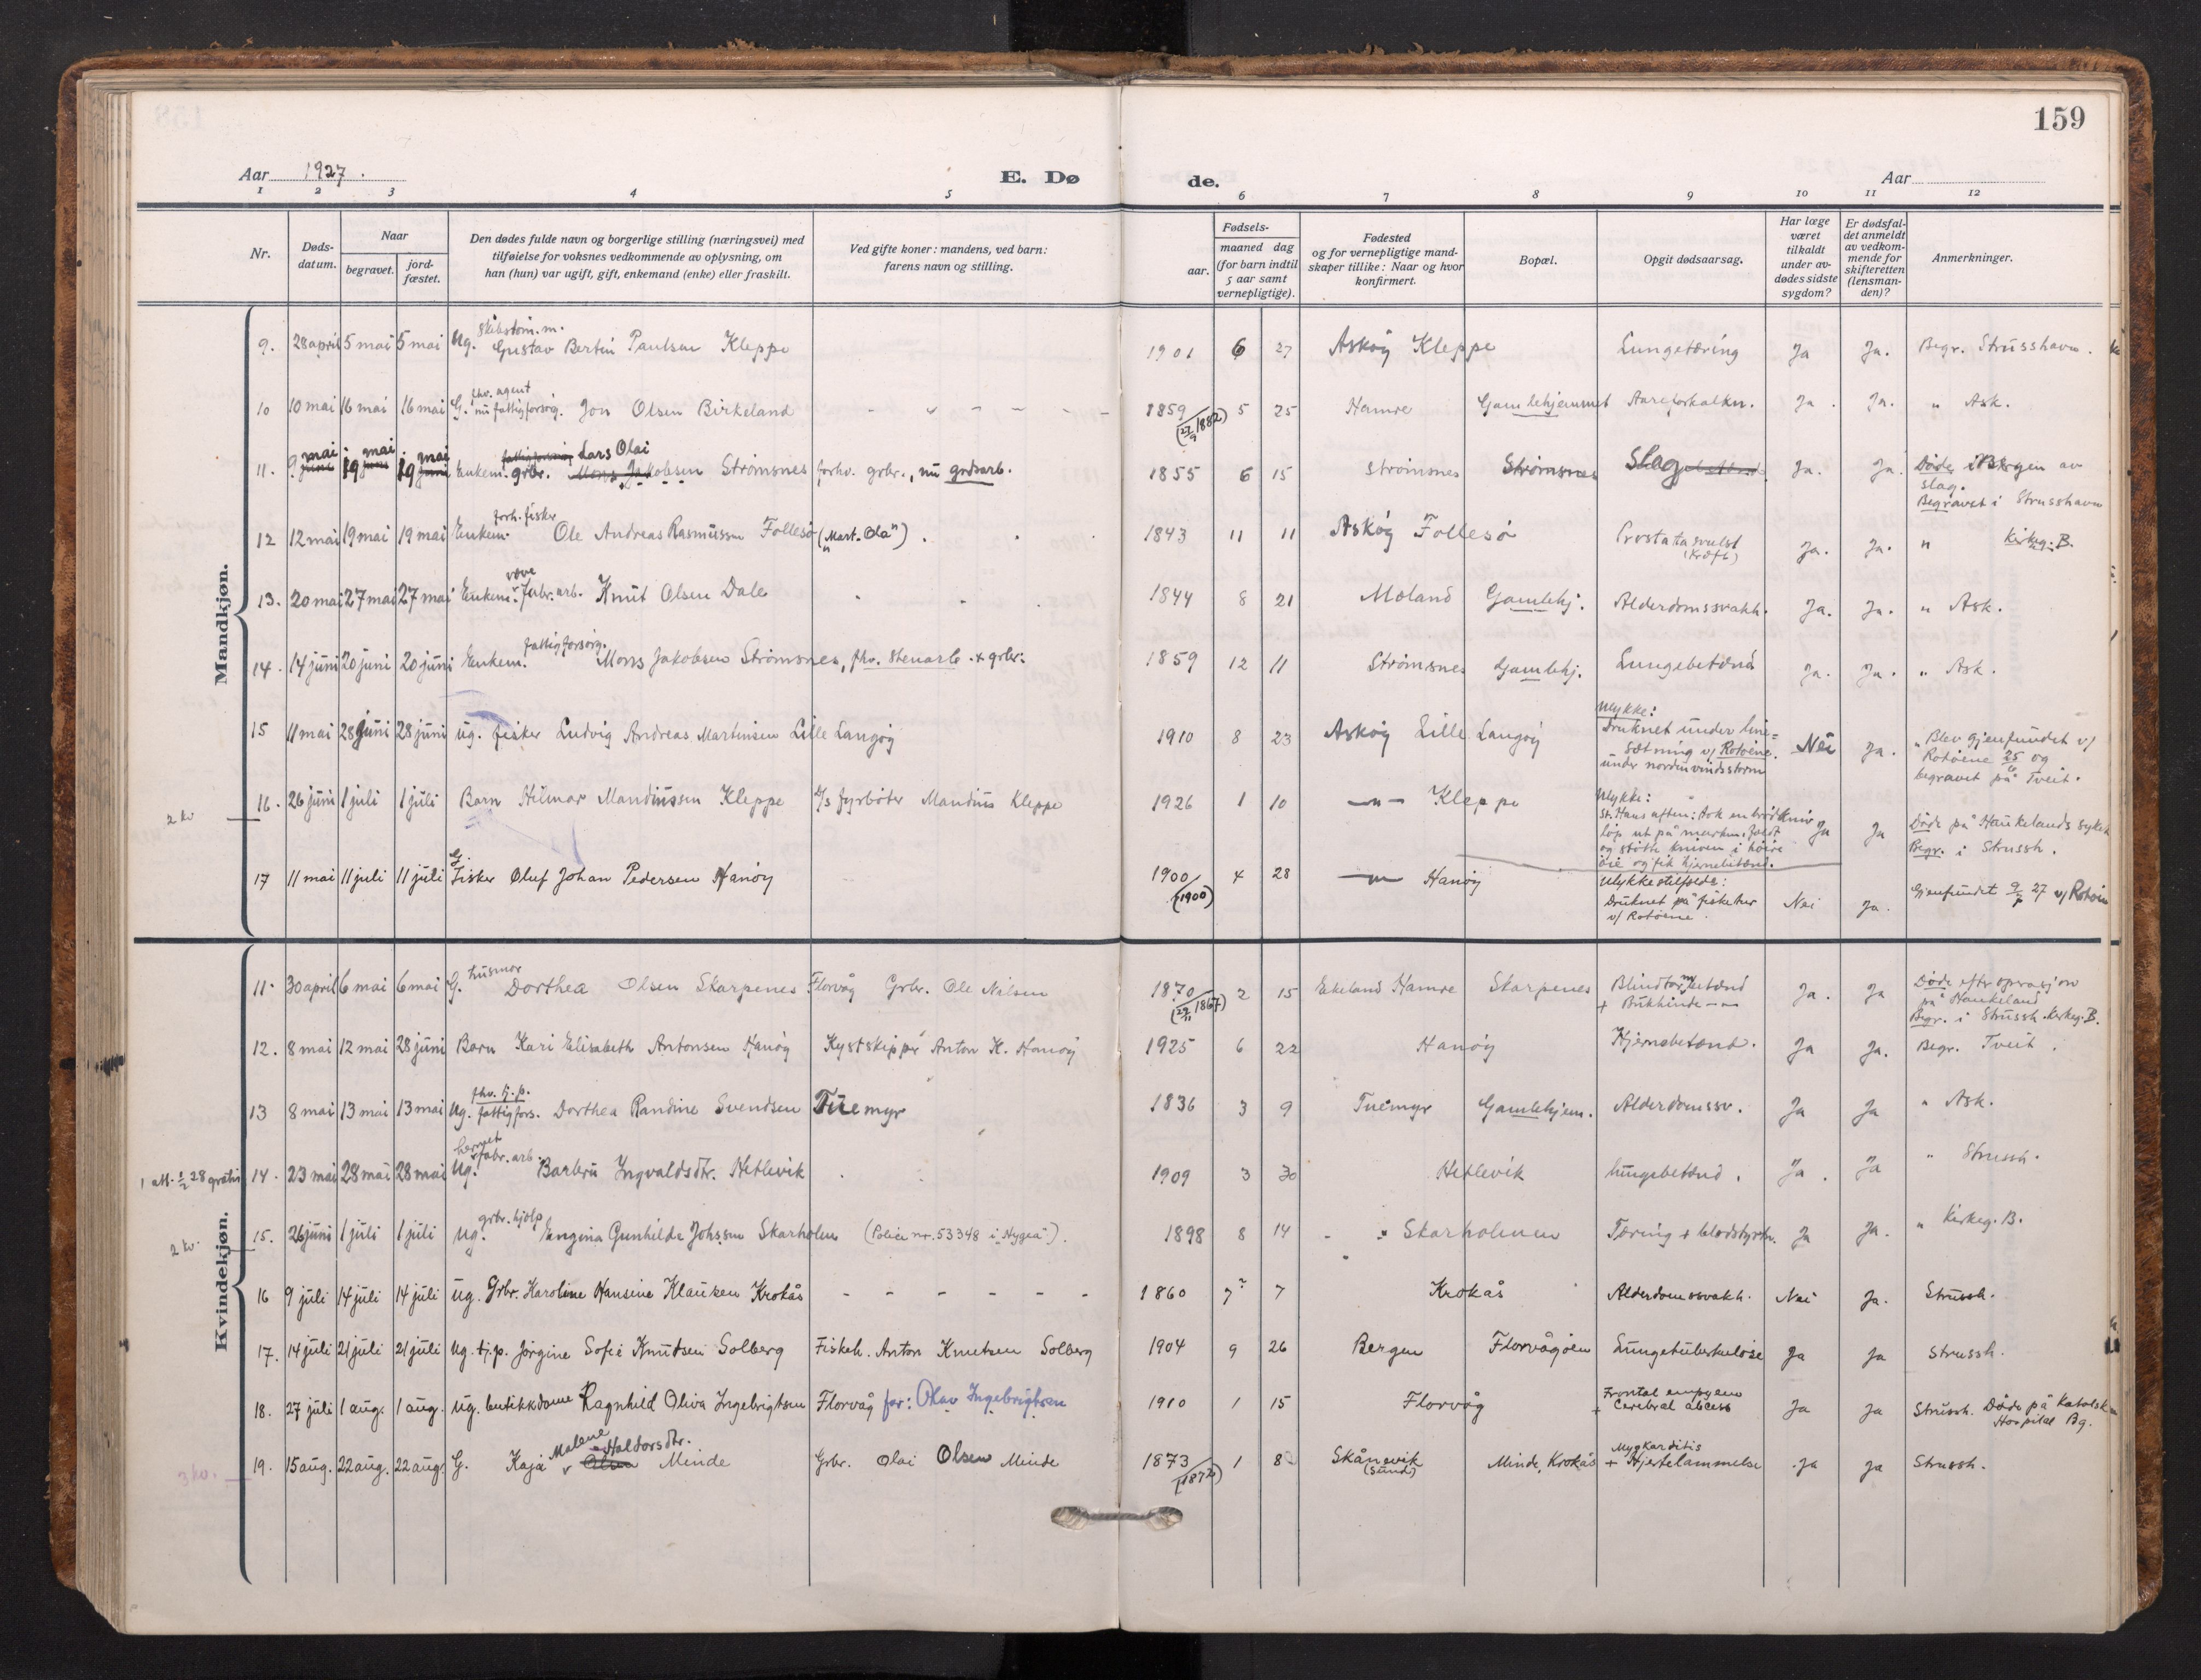 159
Aar 1927. E. Dø de. Aar
1 2 3 4 5 6 7 8 9 10 11 12
Nr.
Døds-
datum.
Naar
begravet.
jord-
fæstet.
Den dødes fulde navn og borgerlige stilling (næringsvei) med
tilføielse for voksnes vedkommende av oplysning, om
han (hun) var ugift, gift, enkemand (enke) eller fraskilt.
Ved gifte koner: mandens, ved barn:
farens navn og stilling.
Fødsels-
aar.
maaned dag
(for barn indtil
5 aar samt
vernepligtige).
Fødested
og for vernepligtige mand-
skaper tillike: Naar og hvor
konfirmert.
Bopæl.
Opgit dødsaarsag.
Har læge
været
tilkaldt
under av-
dødes sidste
sygdom?
Er dødsfal-
det anmeldt
av vedkom-
mende for
skifteretten
(lensman-
den)?
Anmerkninger.
Mandkjøn.
9. 28 april 5 mai 5 mai Ug. Gustav Bertin Paulsen Kleppe 1901 6 27 Askøy Kleppe Lungetæring Ja Ja. Begr. Strusshavn.
fhv. agent
10 10 mai 16 mai 16 mai G. nu fattigforsørg. Jon Olsen Birkeland 1859 5 25 Hamre Gamlehjemmet Aareforkalkn. Ja. Ja. " Ask.
(27/9 1882)
mai mai mai Lars Olai
11. 9 juni 19 juni 19 juni Enkem. grbr. Mons Jakobsen Strømsnes forhv. grbr., nu grdsarb. 1855 6 15 Strømsnes Strømsnes Slag Ja. Ja. Døde i Bergen av
slag.
Begravet i Strusshavn
forh. fisker
12 12 mai 19 mai 19 mai Enkem. Ole Andreas Rasmussen Follesø ("Mart. Ola"). 1843 11 11 Askøy Follesø Prostatasvulst Ja. Ja. " Kirkeg. B.
(Kræft)
væve
13. 20 mai 27 mai 27 mai Enkem. fabr. arb. Knut Olsen Dale 1844 8 21 Moland Gamlehj. Alderdomssvakh. Ja. Ja. " Ask.
fattigforsørg.
14. 14 juni 20 juni 20 juni Enkem. Mons Jakobsen Strømsnes, fhv. stenarb. + grbr. 1859 12 11 Strømsnes Gamlehj. Lungebetænd Ja. Ja. " Ask.
15 11 mai 28 juni 28 juni ug. fisker Ludvig Andreas Martinsen Lille Langøy 1910 8 23 Askøy Lille Langøy Ulykke:
Druknet under line-
sætning v/ Rotøene.
under nordenvindsstorm
Nei Ja. " Blev gjenfundet v/
Rotøene 25/6 og
begravet på Tveit.
2 kv
16. 26 juni 1 juli 1 juli Barn Hilmar Mandiussen Kleppe D/s fyrbøter Mandius Kleppe 1926 1 10 —"— Kleppe Ulykke:
St. Hans aften: tok en brødkniv
løp ut på marken, faldt
og støtte kniven i høire
øie og fik hjernebetænd.
Ja Ja Døde på Haukelands sykeh
Begr. i Strussh.
G.
17 11 mai 11 juli 11 juli Fisker Oluf Johan Pedersen Hanøy 1900 4 28 —"— Hanøy Ulykkestilfælde:
(1900)
Druknet på fisketur
v/ Rotøene.
Nei Ja. Gjenfundet 9/7 27 v/ Rotøen
Kvindekjøn.
husmor
11. 30 april 6 mai 6 mai G. Dorthea Olsen Skarpenes Florvåg Grbr. Ole Nilsen 1870 2 15 Ekeland Hamre Skarpenes Blindtarmbetænd
(29/11 1867) + Bukhinde —"—
Ja. Ja Døde efter operasjon
på Haukeland
Begr. i Strussh. Kirkeg. B.
12. 8 mai 12 mai 28 juni Barn Kari Elisabeth Antonsen Hanøy Kystskipper Anton K. Hanøy 1925 6 22 Hanøy Hjernebetænd. Ja Ja. Begr. Tveit.
fhv. tj. p.
13 8 mai 13 mai 13 mai Ug. fattigfors. Dorthea Randine Svendsen Tuemyr 1836 3 9 Tuemyr Gamlehjem. Alderdomssv. Ja Ja " Ask.
1 att. 1/2 28 gratis
fabr. arb.
14. 23 mai 28 mai 28 mai Ug. Barbru Ingvaldsdtr. Hetlevik 1909 3 30 Hetlevik Lungebetænd. Ja. Ja " Strussh.
2 kv.
grbr. hjelp
15. 26 juni 1 juli 1 juli Ug. Engina Gunhilde Johssen Skarholmen (Police nr. 53348 i "Hygea"). 1898 8 14 " Skarholmen Tæring + blodstyrtn. Ja Ja. " Kirkeg. B.
16 9 juli 14 juli 14 juli ug. Grbr. Karoline Hansine Klausen Krokås 1860 7? 7 Krokås Alderdomssvakh. Nei Ja. Strussh.
17. 14 juli 21 juli 21 juli Ug. tj. p. Jørgine Sofie Knutsen Solberg Fiskeh. Anton Knutsen Solberg 1904 9 26 Bergen Florvågøen Lungetuberkulose Ja Ja Strussh.
18. 27 juli 1 aug. 1 aug. ug. butikkdame Ragnhild Oliva Ingebrigtsen Florvåg far: Olav Ingebrigtsen 1910 1 15 Florvåg Frontal empyem
+ Cerebral abcess
Ja Ja Strussh. Døde på Katolsk
Hospital Bg.
3 kv.
Malene Haldorsdtr.
19. 15 aug. 22 aug. 22 aug. G. Kaja Minde Grbr. Olai Olsen Minde 1873 1 8 Skånevik Minde, Krokås Myokarditis
(1872) (Sund) + Hjertelammelse
Ja Ja Strussh.